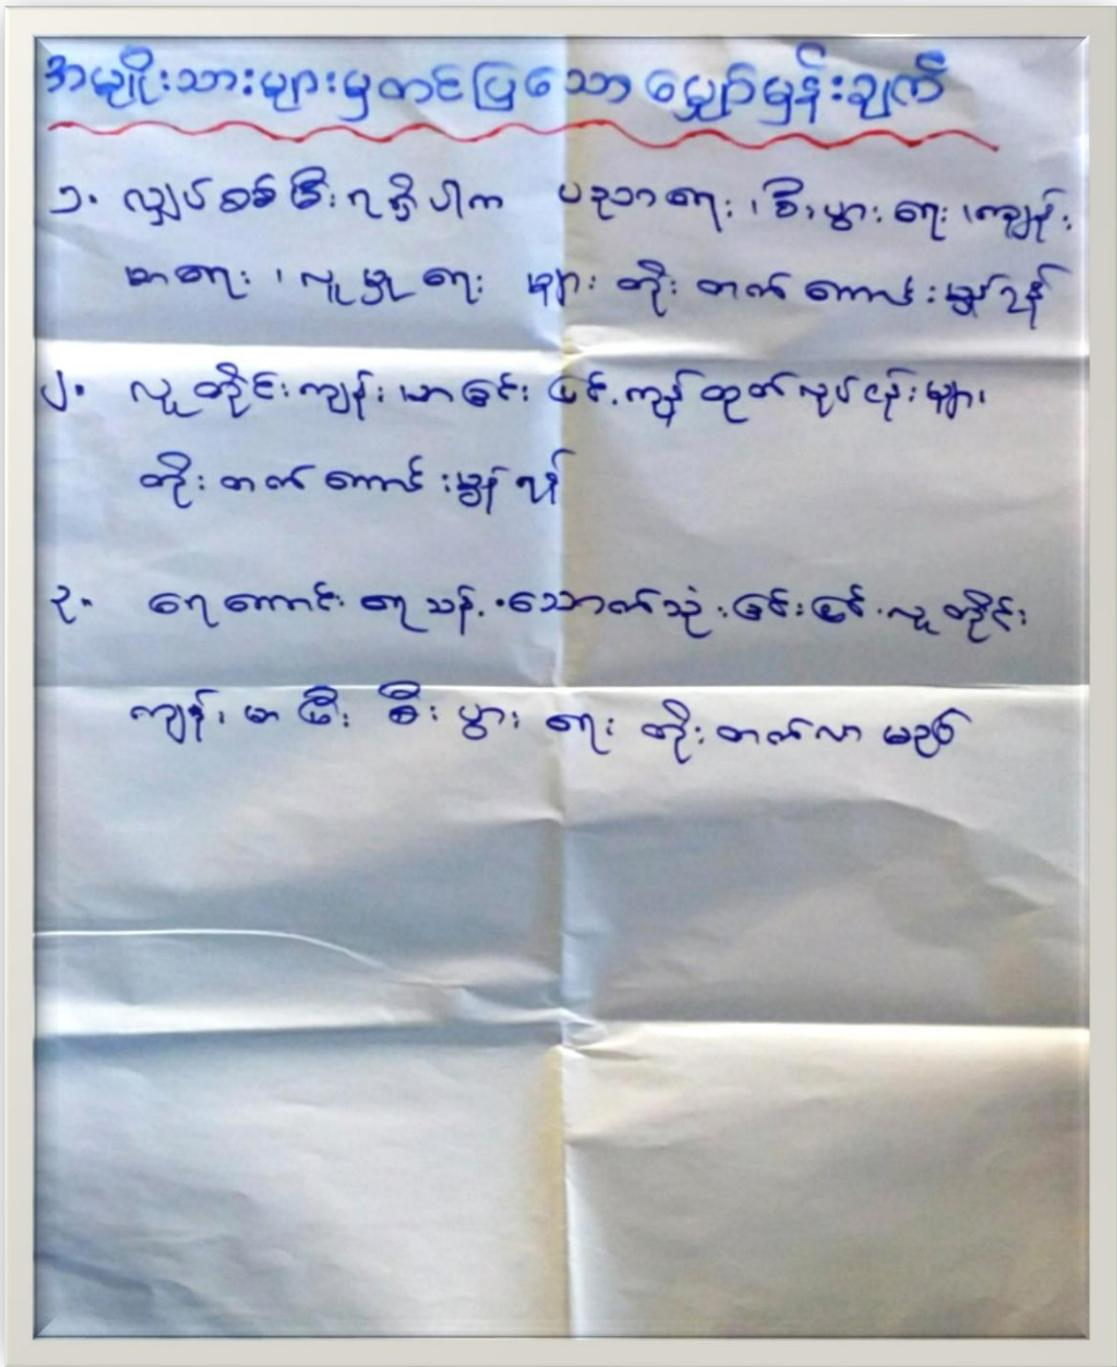 အမျိုးသားများမှတင်ပြသော မျှော်မှန်းချက်
၁. လျှပ်စစ်မီးရရှိပါက ပညာရေး၊ စီးပွားရေး၊ ကျန်း
မာရေး၊ လူမှုရေး များ တိုး တက် ကောင်းမွန်ရန်
၂. လူတိုင်းကျန်းမာခြင်းဖြင့် ကုန်ထုတ်လုပ်ငန်းများ
တိုး တက် ကောင်းမွန်ရန်
၃. ရေကောင်းရေသန့် သောက်သုံးခြင်းဖြင့် လူတိုင်း
ကျန်းမာပြီး စီးပွားရေး တိုးတက်လာမည်